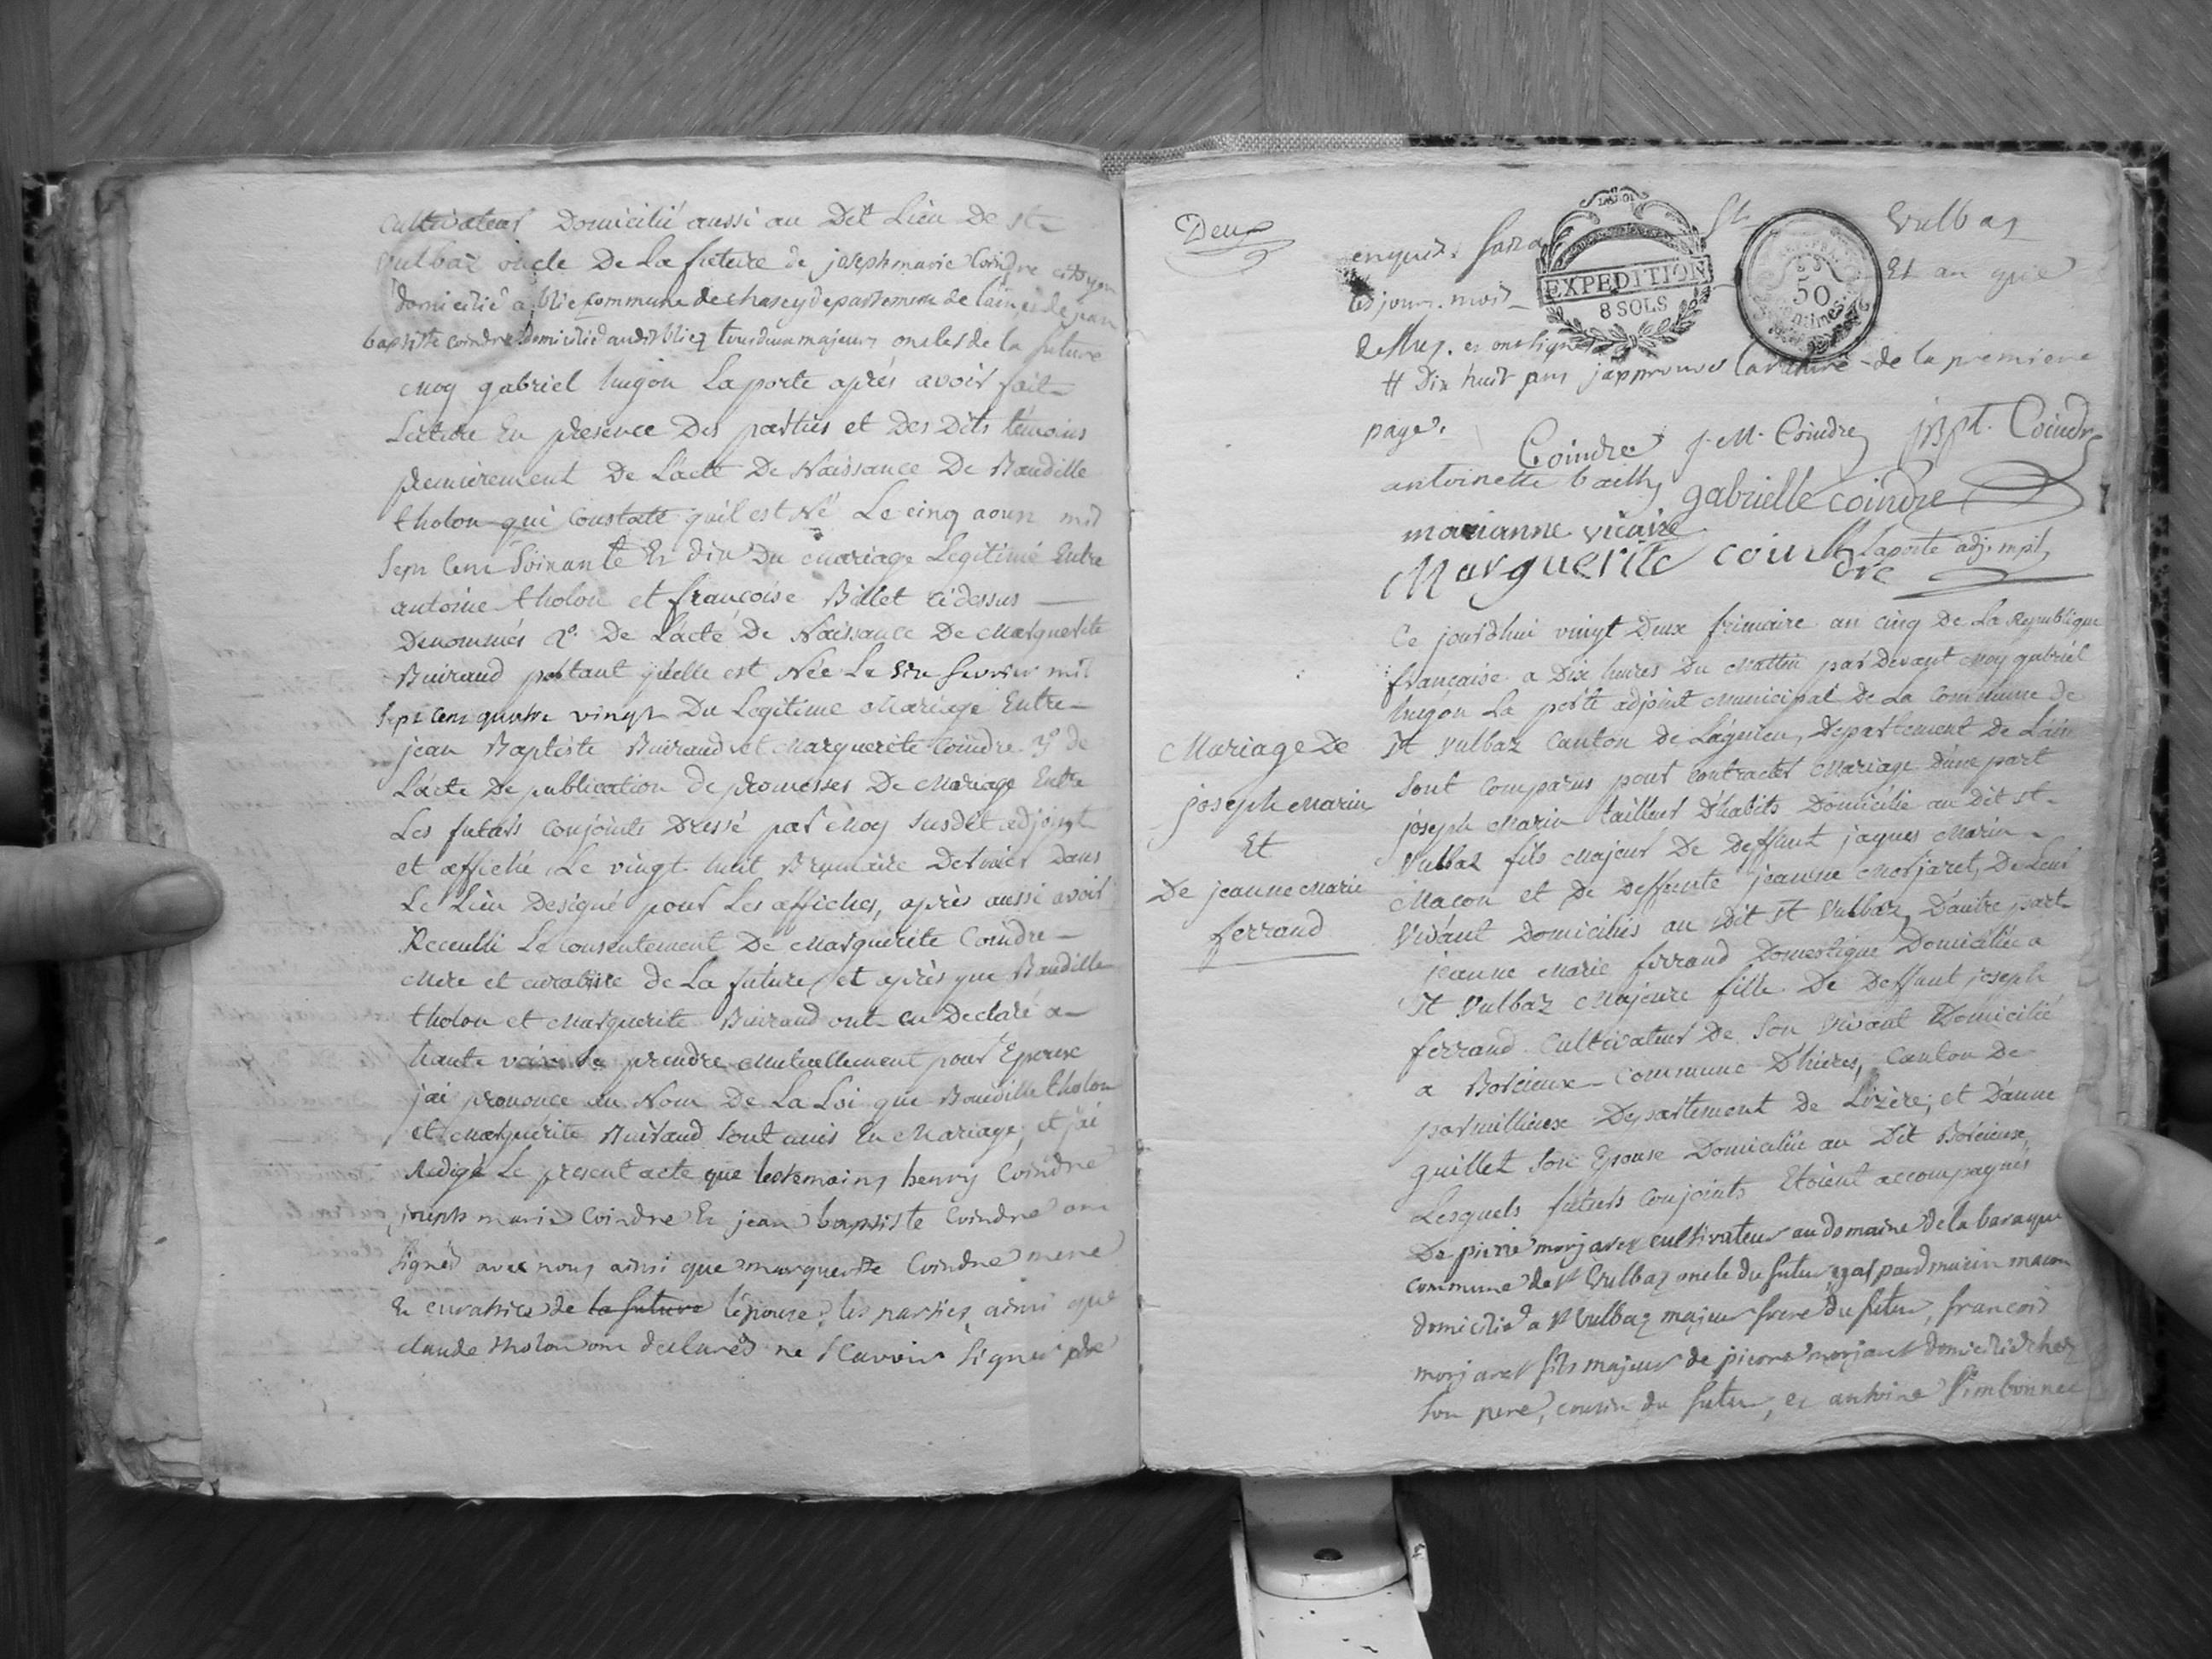 Cultivateur Domicilié aussi au Dit Lieu De St
Vulbaz oncle De La future de joseph marie Coindre citoyen
domicilié a blie commune de chasey departement de lain, et de jean
baptiste coindre domicilié audit bliez tous deux majeurs oncles de la future
moy gabriel hugon Laporte après avoir fait
Lecture En presence Des parties et Des Dits témoins
premierement De L'acte De Naissance De Baudille
tholon qui Constate qu'il est Né Le cinq aoust mil
Sept Cent Soixante Et dix Du Mariage Legitime Entre
antoine tholon et françoise Billet cidessus
Denommés 2º. De L'acte De Naissance De Marguerite
Buirand portant qu'elle est Née Le six fevrier mil
Sept Cent quatre vingt Du Legitime Mariage Entre
jean Baptiste Buirand et Marguerite Coindre 3º de
L'acte De publication de promesses De Mariage Entre
Les futurs conjoints Dressé par Moy Susdit adjoint
et affiché Le vingt huit Brumaire Dernier Dans
Le Lieu Designé pour Les affiches, après aussi avoir
Receuilli Le consentement De Marguerite Coindre
Mere et curatrice de La future, et après que Baudille
tholon et Marguerite Buirand ont eu Declaré a
haute voix Se prendre Mutuellement pour Epoux
j'ai prononcé au Nom De La Loi que Baudille tholon
et Marguerite Buirand Sont unis En Mariage, et j'ai
Redigé Le present acte que les temoins henry Coindre
joseph marie Coindre Et jean baptiste Coindre ont
Signés avec nous ainsi que marguerite Coindre mere
Et curatrice de la future l'épouse, les parties, ainsi que
claude tholon ont declarés ne Scavoir Signer de
Deux
enquis. fait a St Vulbaz
les jour. mois Et an que
dessus. et ont signé
# Dix huit ans japprouve la rature de la premiere
page.
Coindre J. M. Coindre J Bpt. Coindre
antoinette bailly gabrielle coindre
marianne vicaire
Marguerite coindre Laporte adj. mpl,
LA LOI
EXPEDITION
8 SOLS
50
centimes
Ce jourdhui vingt Deux frimaire an cinq De La Republique
française a Dix heures Du Mattin par Devant Moy gabriel
hugon La porte adjoint Municipal De La Commune de
St Vulbaz Canton de Lagnieu, Departement De L'ain
Sont Comparus pour Contracter Mariage D'une part
joseph Marin tailleur D'habits Domicilié au Dit St
Vulbaz fils Majeur De Deffunt jaques Marin
Macon et De Deffunte jeanne Morjaret, De Leur
Vivant Domiciliés au Dit St Vulbaz, D'autre part
jeanne Marie ferrand Domestique Domiciliée a
St Vulbaz Majeure fille De Deffunt joseph
ferrand Cultivateur De Son Vivant Domicilié
a Borcieux Commune D'hieres, Canton De
parmillieux Departement de Lizère, et D'anne
guillet Son Epouse Domiciliée au Dit Borcieux,
Lesquels futurs Conjoints Etoient accompagnés
De pierre morjaret cultivateur au domaine de la baraque
commune de St Vulbaz oncle du futur, gaspard marin macon
domicilié a St Vulbaz majeur frere du futur, françois
morjaret fils majeur de pierre morjaret domicilié chez
Son pere, cousin du futur, et antoine Simbonnet
Mariage De
joseph Marin
Et
De jeanne Marie
ferrand